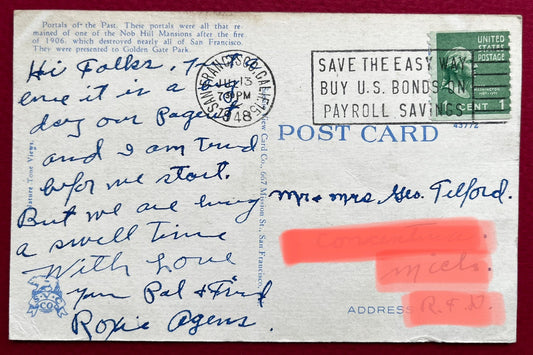 Portals of the Past. These portals were all that re-
mained of one of the Nob Hill Mansions after the fire
of 1906, which destroyed nearly all of San Francisco.
They were presented to Golden Gate Park.
Hi Folks,
ence it is a big
day our Pagent
and I am tired
before we start.
But we are having
a swell time
With Love
your Pal & Frind
Roxie Agens
SAN FRANCISCO, CALIF.
JUL 13
730 PM
1948
SAVE THE EASY WAY
BUY U.S. BONDS ON
PAYROLL SAVINGS
UNITED
STATES
POSTAGE
WASHINGTON
CENT 1
43772
POST CARD
View Card Co., 667 Mission St., San Francisco
Mr & Mrs Geo. Telford.
Mich.
ADDRESS